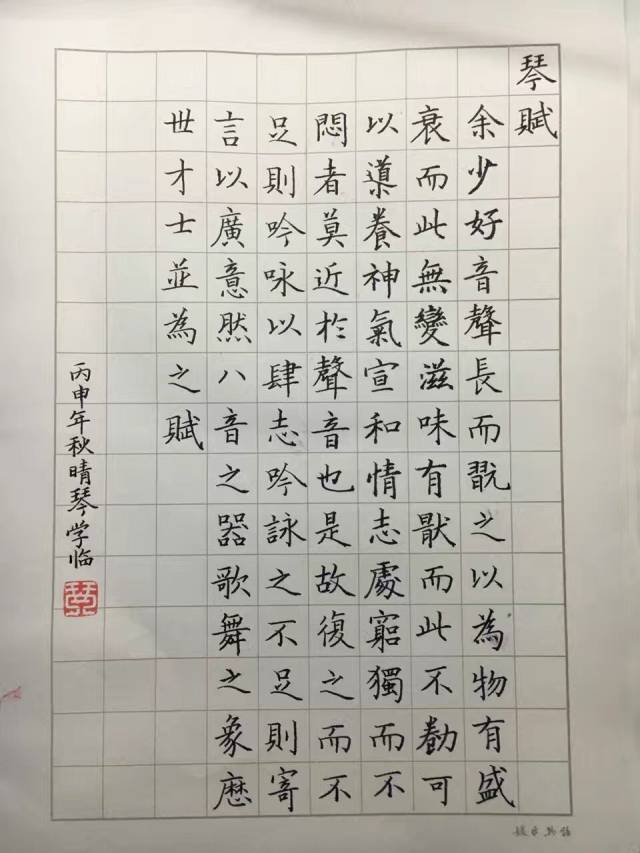 琴賦
余少好音聲長而翫之以為物有盛
衰而此無變滋味有猒而此不勌可
以導養神氣宣和情志處窮獨而不
悶者莫近於聲音也是故復之而不
足則吟咏以肆志吟詠之不足則寄
言以廣意然八音之器歌舞之象歷
世才士並為之賦
丙申年秋晴琴学临